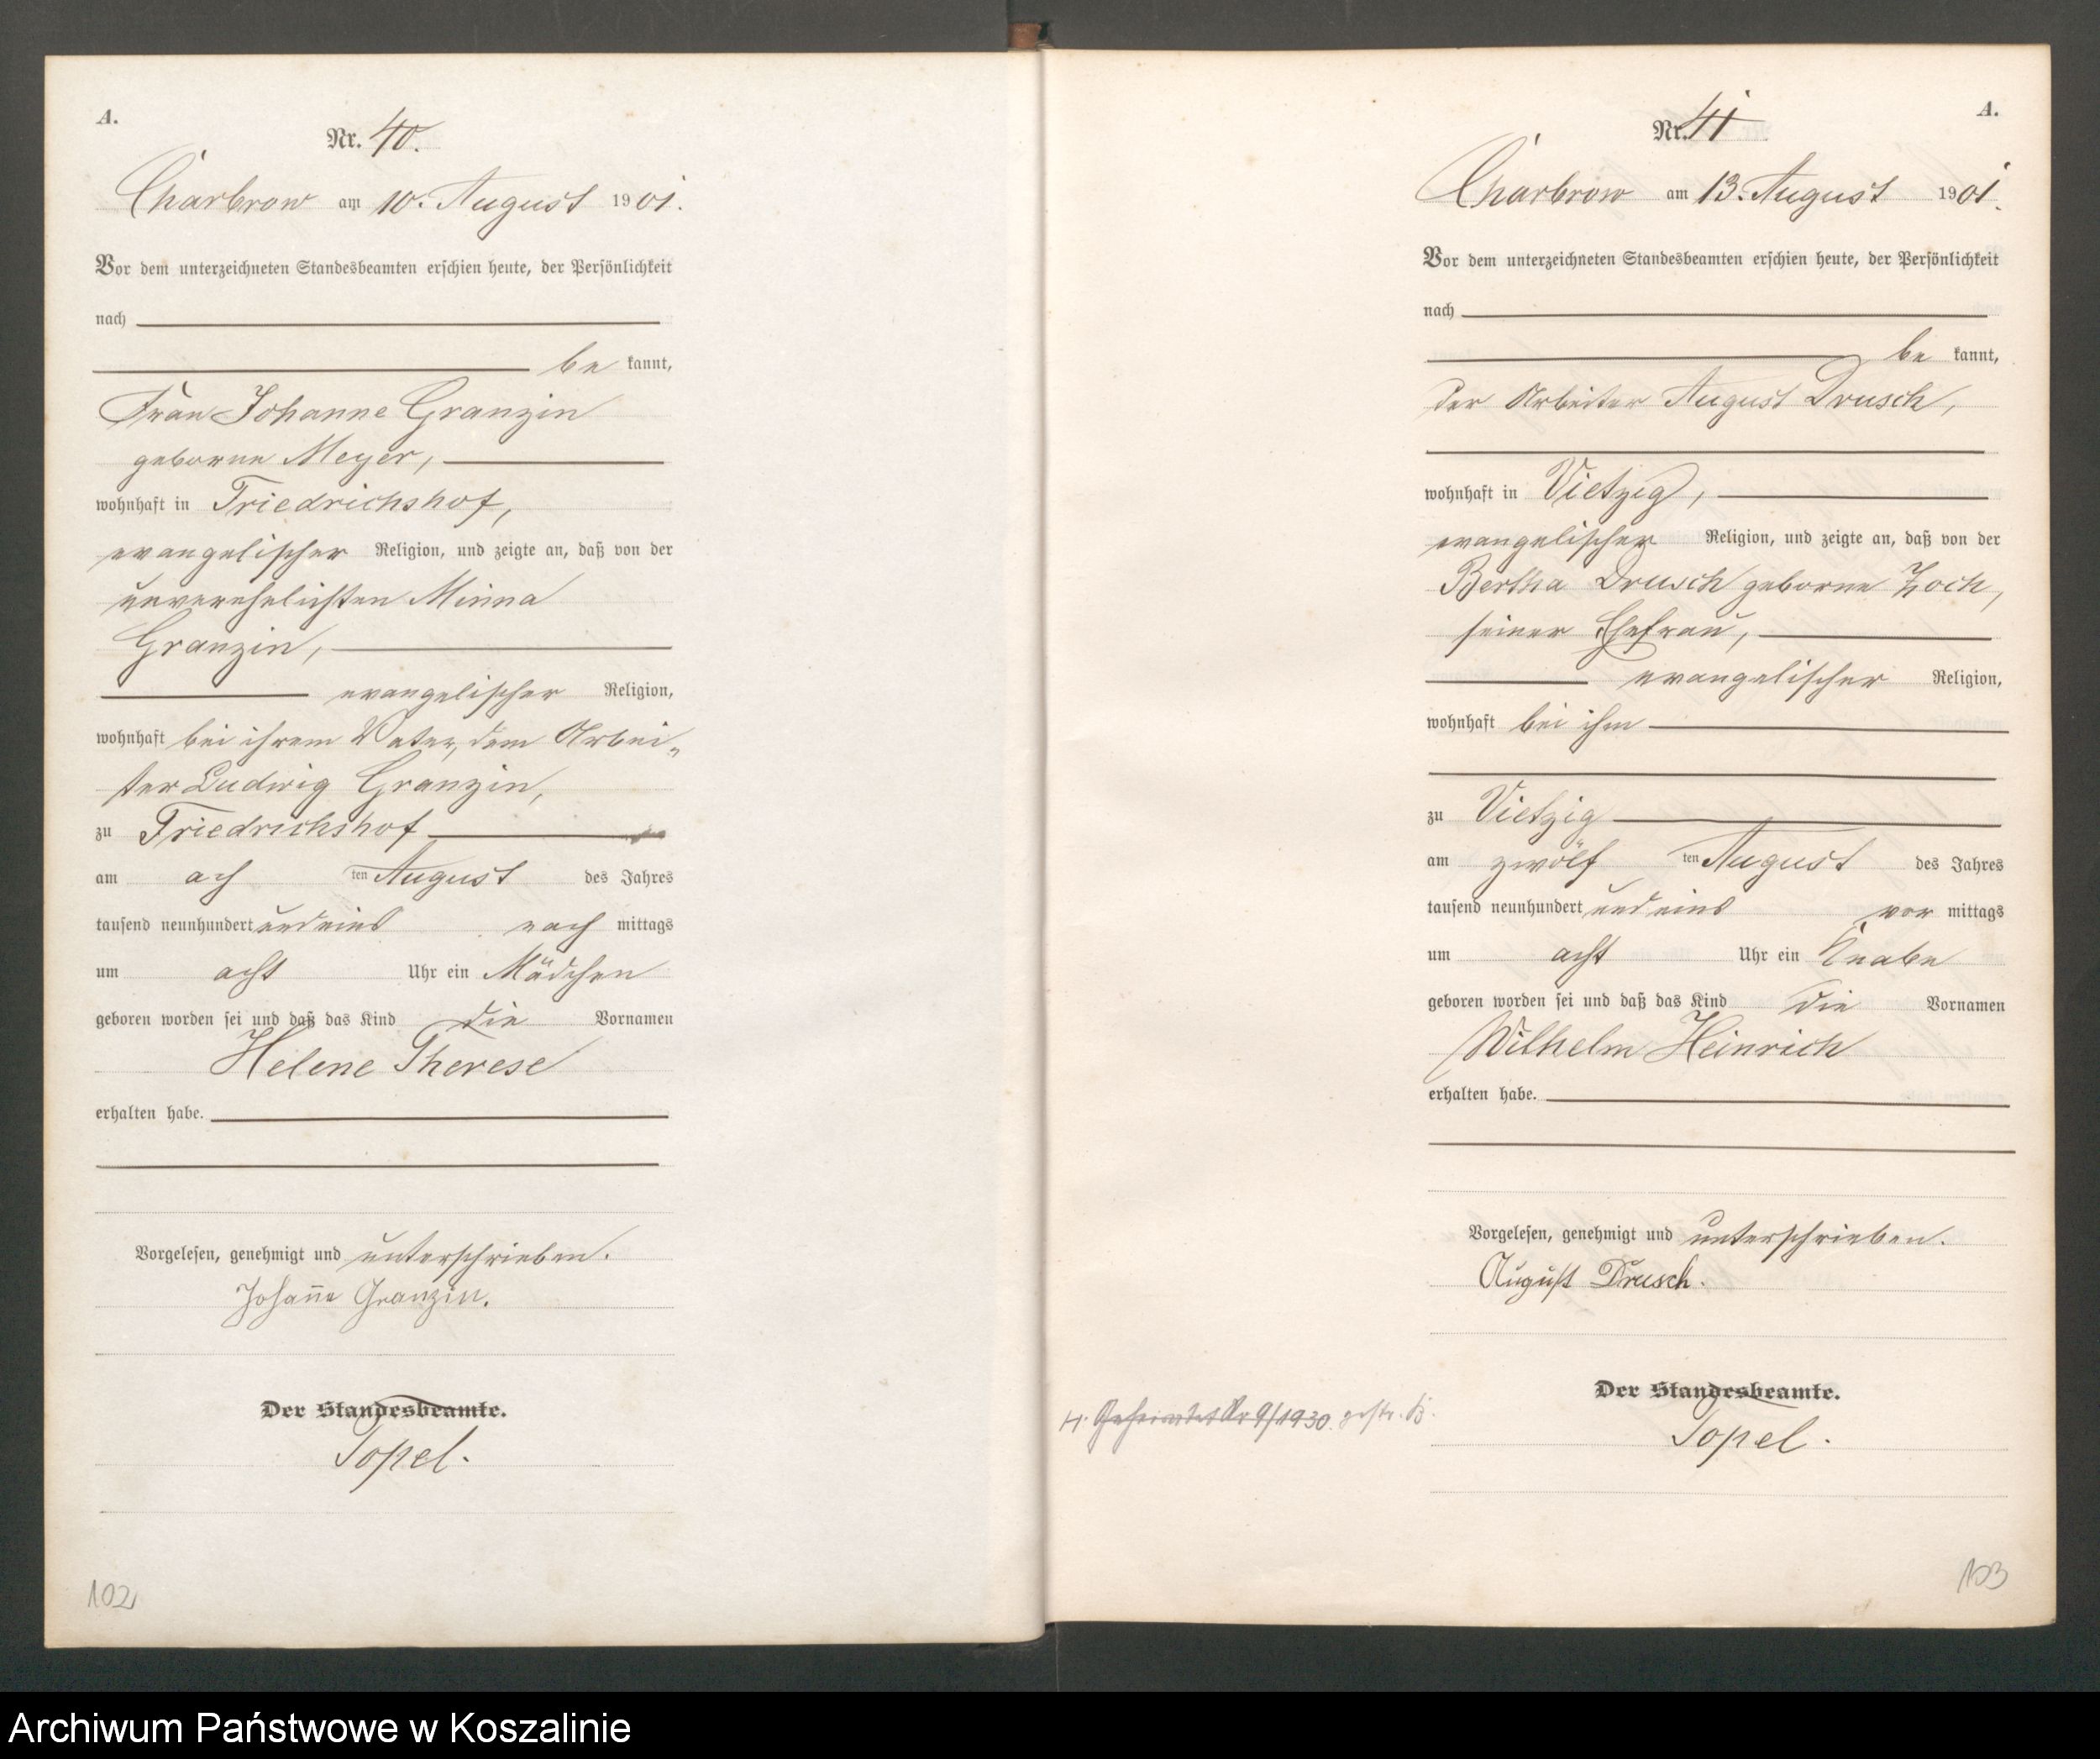 A.
Nr. 40.
Charbrow am 10. August 1901.
Vor dem unterzeichneten Standesbeamten erschien heute, der Persönlichkeit
nach
be kannt,
Frau Johanne Granzin
geborne Meyer,
wohnhaft in Friedrichshof,
evangelischer Religion, und zeigte an, daß von der
unverehelichten Minna
Granzin,
evangelischer Religion,
wohnhaft bei ihrem Vater, dem Arbei„
ter Ludwig Granzin,
zu Friedrichshof
am ach ten August des Jahres
tausend neunhundert und eins nach mittags
um acht Uhr ein Mädchen
geboren worden sei und daß das Kind die Vornamen
Helene Therese
erhalten habe.
Vorgelesen, genehmigt und unterschrieben.
Johanne Granzin.
Der Standesbeamte.
Topel.
102
A.
Nr. 41
Charbrow am 13. August 1901.
Vor dem unterzeichneten Standesbeamten erschien heute, der Persönlichkeit
nach
be kannt,
der Arbeiter August Drusch,
wohnhaft in Vietzig,
evangelischer Religion, und zeigte an, daß von der
Bertha Drusch geborne Zoch,
seiner Ehefrau,
evangelischer Religion,
wohnhaft bei ihm
zu Vietzig
am zwölf ten August des Jahres
tausend neunhundert und eins vor mittags
um acht Uhr ein Knabe
geboren worden sei und daß das Kind die Vornamen
Wilhelm Heinrich
erhalten habe.
Vorgelesen, genehmigt und unterschrieben.
August Drusch.
Der Standesbeamte.
Topel.
Nr 9/1930. gestr.
103
Archiwum Państwowe w Koszalinie